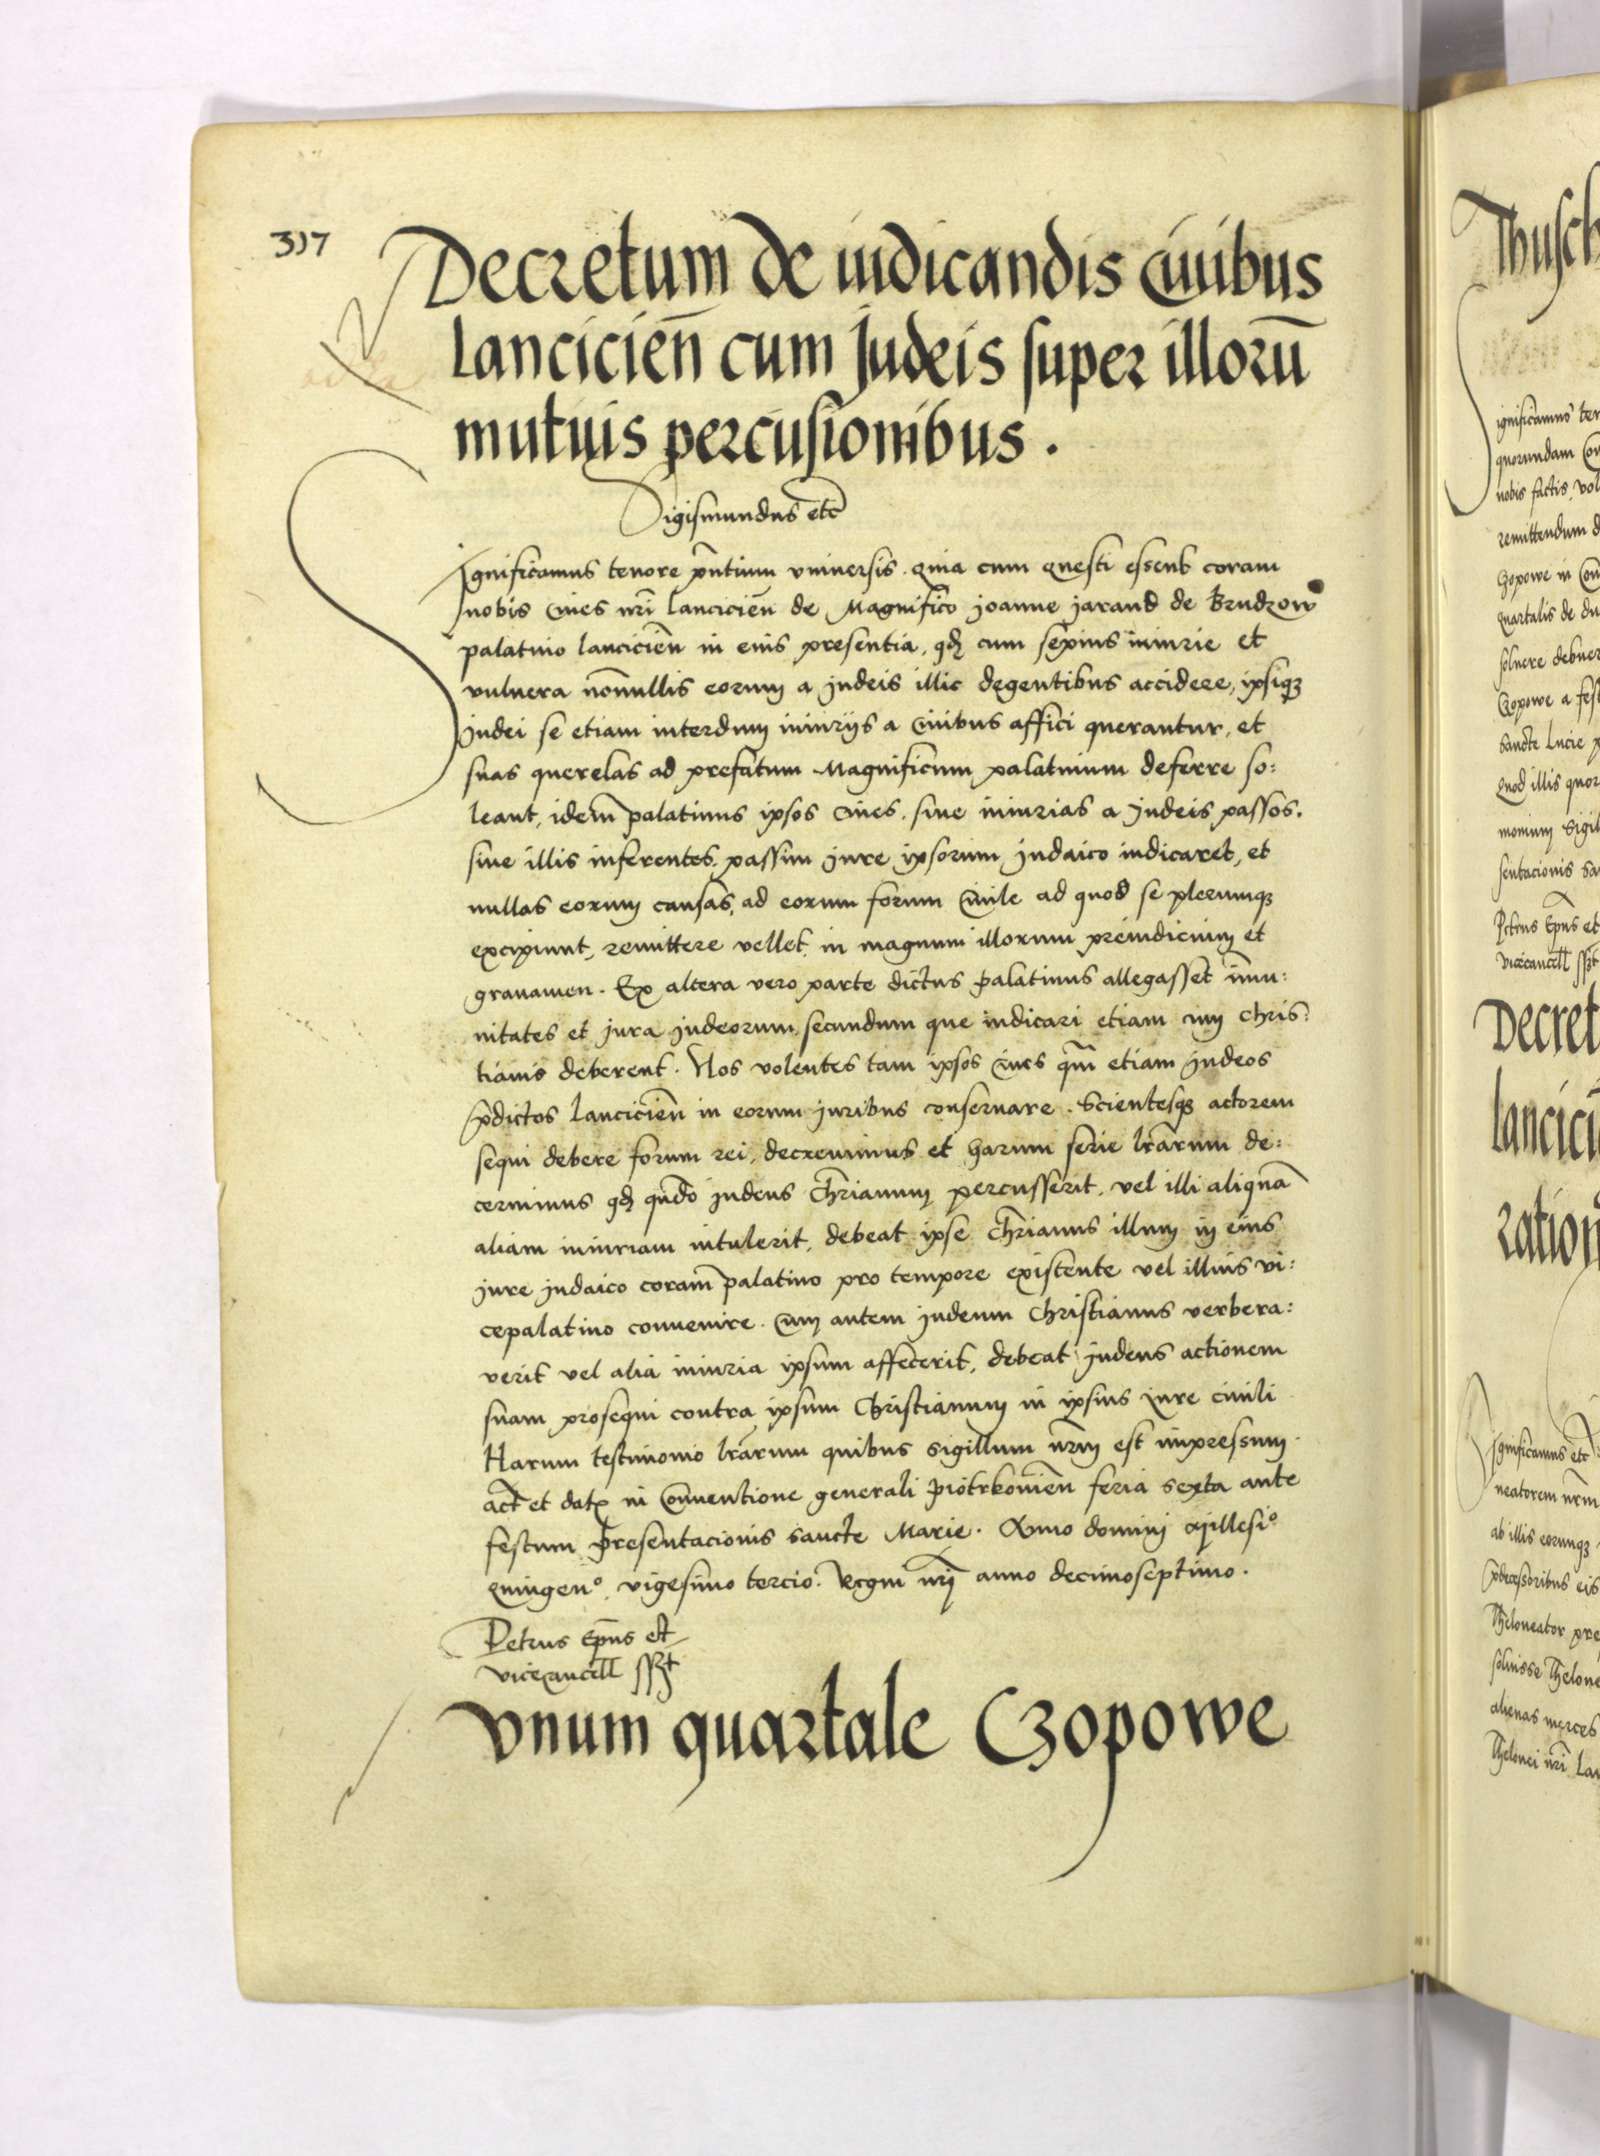 317
Decretum de iudicandis Civibus
lancicien̄ cum Judeis super illorū
mutuis percusionibus .
Sigismundus etc̄
Significamus tenore p̄ntium vniuersis . quia cum questi essent coram
nobis Ciues nr̄i lancicien̄ de Magnifico Joanne Jarand de Brudzow
palatino lancicien̄ in eius presentia, qd̄ cum sepius iniurie et
vulnera nōnullis eorum a Judeis illic degentibus accidere, ipsiqȝ
Judei se etiam interdum iniurijs a Ciuibus affici querantur, et
suas querelas ad prefatum Magnificum palatinum deferre so:
leant, idem palatinus ipsos Ciues, siue iniurias a Judeis passos,
siue illis inferentes, passim Jure ipsorum Judaico iudicaret, et
nullas eorum causas, ad eorum forum Ciuile ad quod se plerumqȝ
excipiunt, remittere vellet, in magnum illorum preiudicium et
grauamen . Ex altera vero parte dictus palatinus allegasset īmu:
nitates et Jura Judeorum, secundum que iudicari etiam cum Chris:
tianis deberent . Nos volentes tam ipsos Ciues qm̄ etiam Judeos
p̄dictos lancicien̄ in eorum Juribus conseruare . Scientesqȝ actorem
sequi debere forum rei, decreuimus et harum serie lr̄arum de:
cernimus qd̄ qn̄do Judeus Chr̄ianum percusserit, vel illi aliquā
aliam iniuriam intulerit, debeat ipse Chr̄ianus illum in eius
Jure Judaico coram palatino pro tempore existente vel illius vi:
cepalatino conuenire . Cum autem Judeum Christianus verbera:
uerit vel alia iniuria ipsum affecerit, debeat Judeus actionem
suam prosequi contra ipsum Christianum in ipsius Jure ciuili
Harum testimonio lr̄arum quibus sigillum nr̄m est impressum .
act̄ et dat̄ in Conuentione generali Piotrkouien̄ feria sexta ante
festum Presentacionis sancte Marie . Anno domini Millesiº
quingenº vigesimo tercio . Regni nr̄i anno decimoseptimo .
Petrus Ep̄us et
vicecancell sszt
Vnum quartale Czopowe
Thusch
ignificamus ten
quorundam Con
nobis factis, vol
remittendum d
Czopowe in Con
quartalis de du
soluere debuer
Czopowe a fest
sancte Lucie p
quod illis quor
monium Sigil
sentacionis Sa
Petrus Ep̄us et
vicecancell sszt
Decret
lancici
ration
Significamus etc̄
neatorem nr̄m
ab illis eorumqȝ
p̄decessoribus eis
Theloneator pre
soluisse Thelone
alienas merces
Thelonei nr̄i Lan